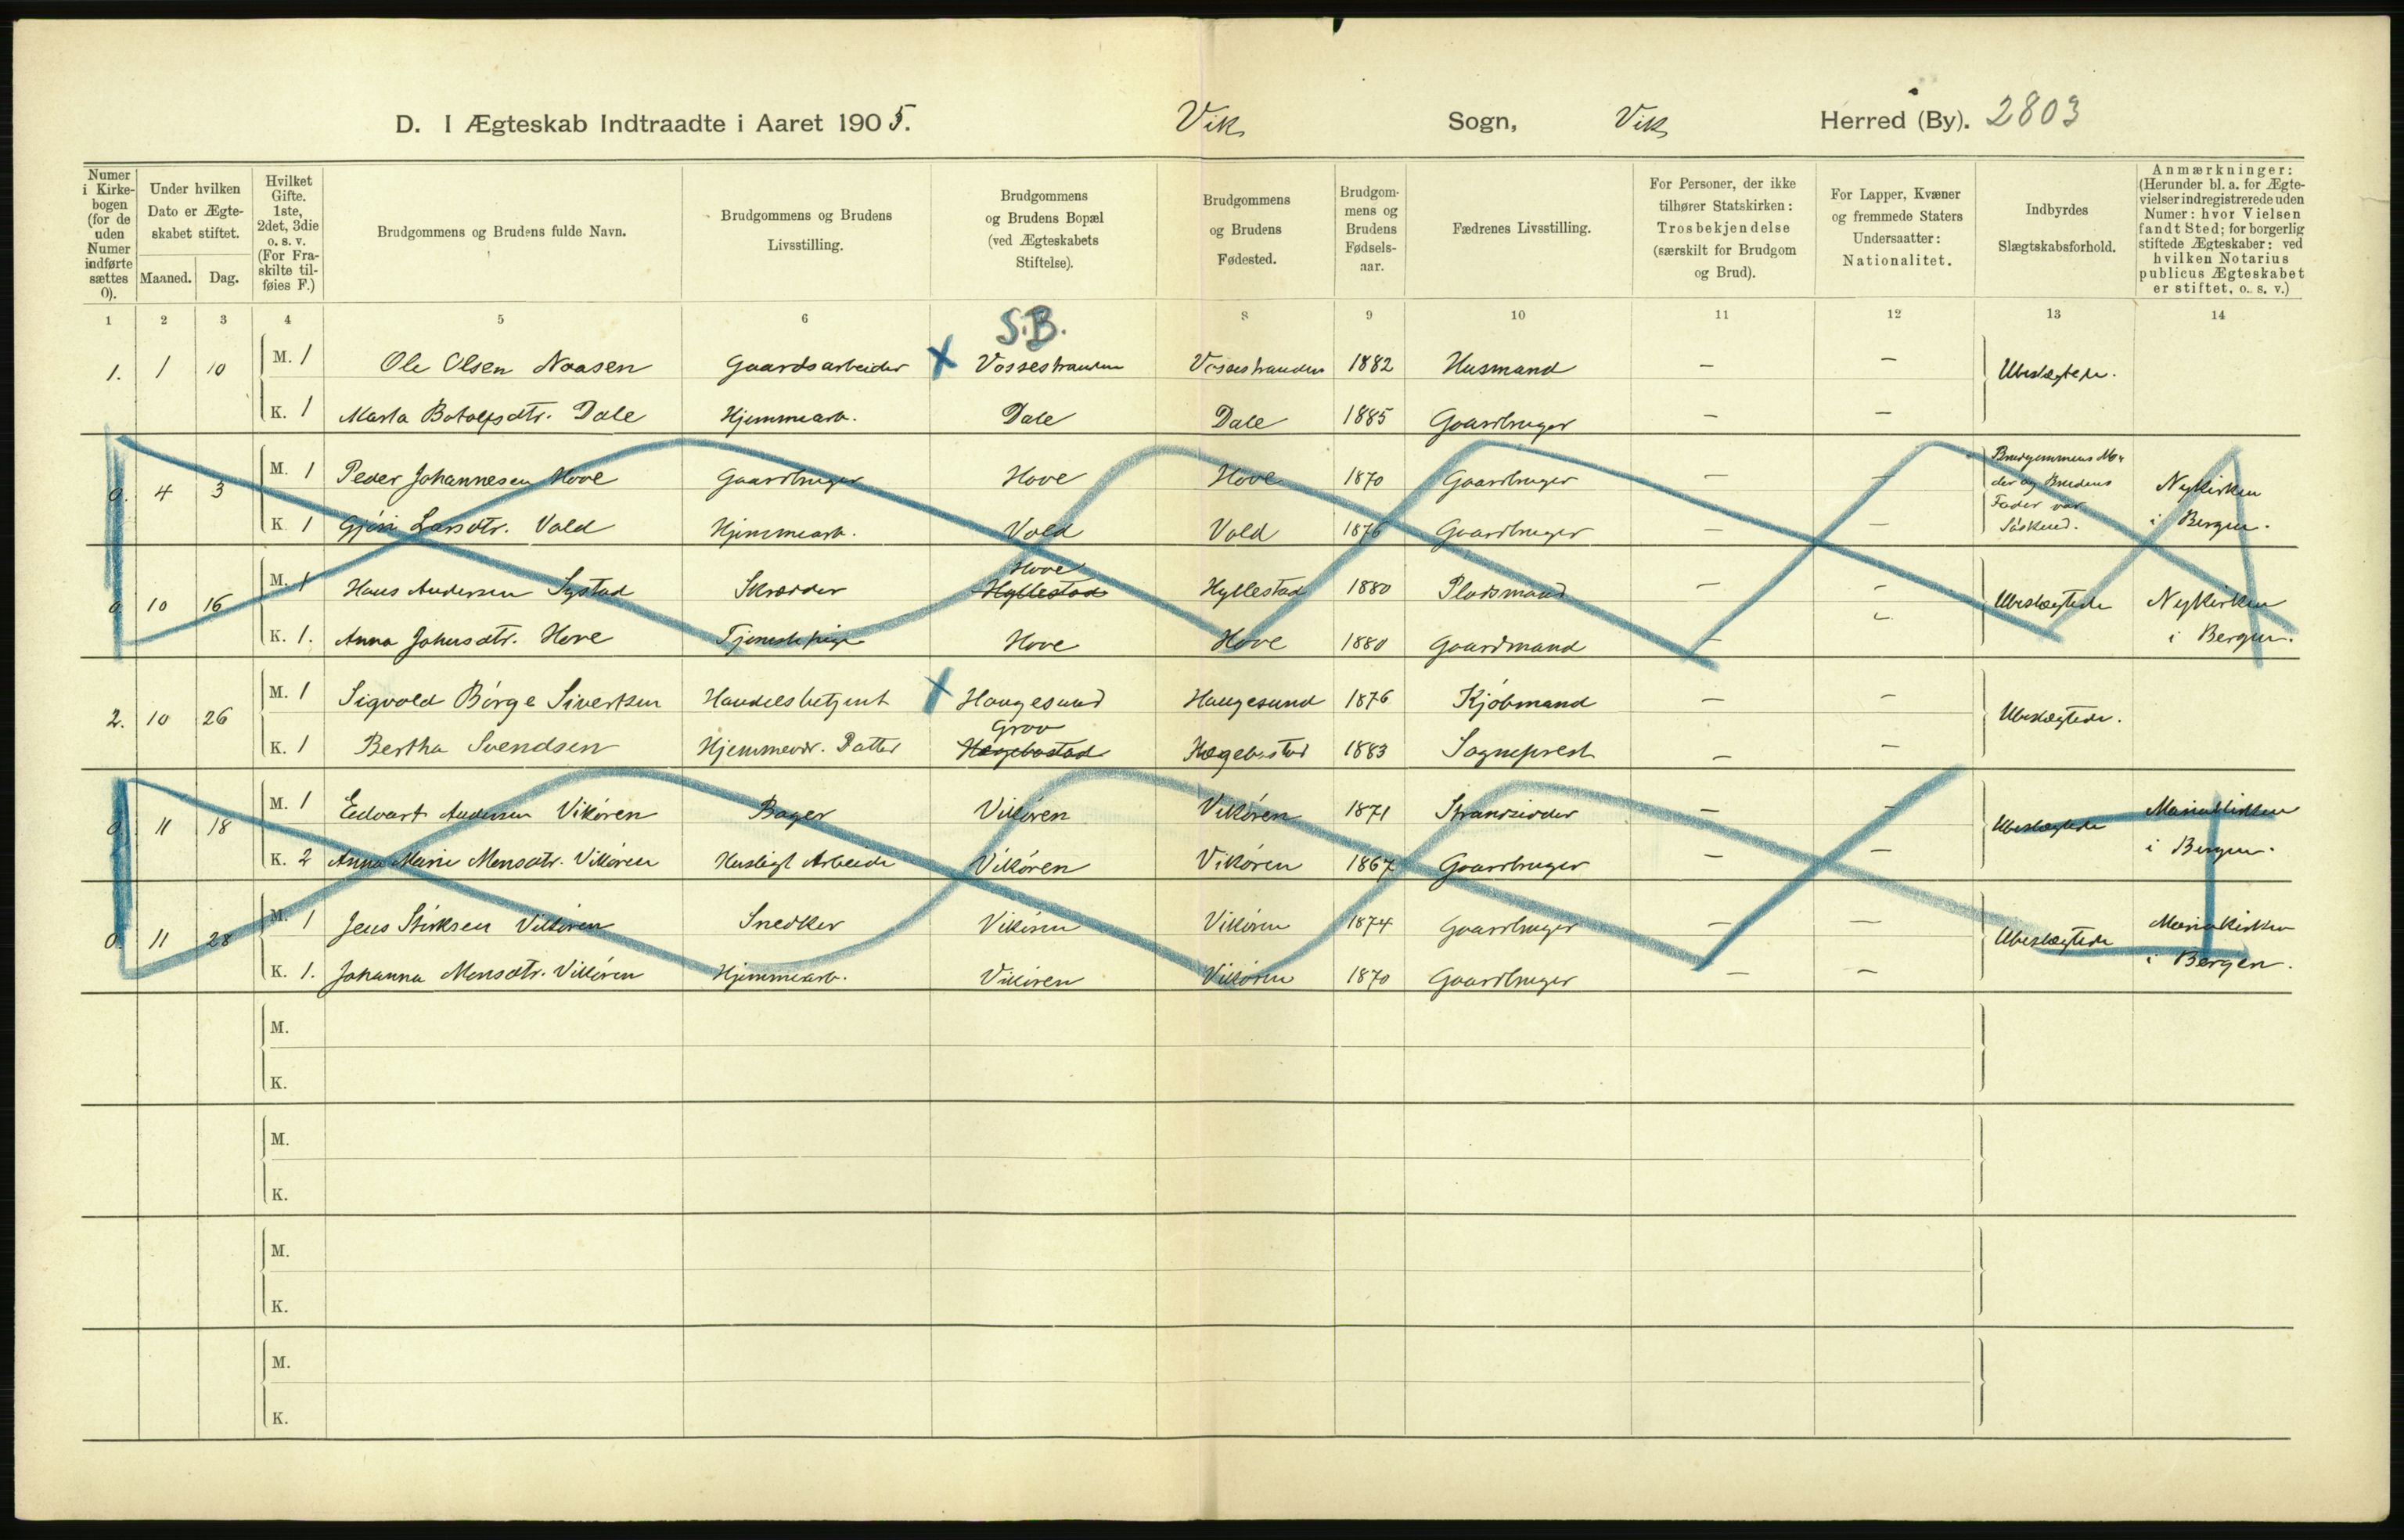 D. I Ægteskab Indtraadte i Aaret 1905. Vik Sogn, Vik Herred (By). 2803
Numer i Kirkebogen (for de uden Numer indførte sættes 0).
Under hvilken Dato er Ægteskabet stiftet.
Maaned. Dag.
Hvilket Gifte. 1ste, 2det, 3die o. s. v. (For Fraskilte tilføies F.)
Brudgommens og Brudens fulde Navn.
Brudgommens og Brudens Livsstilling.
Brudgommens og Brudens Bopæl (ved Ægteskabets Stiftelse).
Brudgommens og Brudens Fødested.
Brudgommens og Brudens Fødselsaar.
Fædrenes Livsstilling.
For Personer, der ikke tilhører Statskirken: Trosbekjendelse (særskilt for Brudgom og Brud).
For Lapper, Kvæner og fremmede Staters Undersaatter: Nationalitet.
Indbyrdes Slægtskabsforhold.
Anmærkninger: (Herunder bl. a. for Ægtevielser indregistrerede uden Numer: hvor Vielsen fandt Sted; for borgerlig stiftede Ægteskaber: ved hvilken Notarius publicus Ægteskabet er stiftet, o. s. v.)
1 2 3 4 5 6 8 9 10 11 12 13 14
S.B.
1. 1 10 M. 1 Ole Olsen Naasen Gaardsarbeider X Vossestranden Vossestranden 1882 Husmand — — Ubeslægtede.
K. 1 Marta Botolfsdtr. Dale Hjemmearb. Dale Dale 1885 Gaardbruger — —
0. 4 3 M. 1 Peder Johannesen Hove Gaardbruger Hove Hove 1870 Gaardbruger — — Brudgommens Moder og Brudens Fader var Søskend. Nykirken
K. 1 Gjøri Larsdtr. Vold Hjemmearb. Vold Vold 1876 Gaardbruger — — i Bergen.
Hove
0 10 16 M. 1 Hans Andersen Systad Skrædder Hyllestad Hyllestad 1880 Pladsmand — — Ubeslægtede Nykirken
K. 1. Anna Johnsdtr. Hove Tjenestepige Hove Hove 1880 Gaardmand — — i Bergen.
2. 10 26 M. 1 Sigvald Børge Sivertsen Handelsbetjent X Haugesund Haugesund 1876 Kjøbmand — — Ubeslægtede.
Grov
K. 1 Bertha Svendsen Hjemmevær. Datter Hægebostad Hægebostad 1883 Sogneprest — —
0 11 18 M. 1 Edvart Andersen Vikøren Bager Vikøren Vikøren 1871 Strandsidder — — Ubeslægtede Mariakirken
K. 2 Anna Marie Monsdtr. Vikøren Husligt Arbeide Vikøren Vikøren 1867 Gaardbruger — — i Bergen.
0. 11 28 M. 1 Jens Stirksen Vikøren Snedker Vikøren Vikøren 1874 Gaardbruger — — Ubeslægtede Mariakirken
K. 1. Johanna Monsdtr. Vikøren Hjemmearb. Vikøren Vikøren 1870 Gaardbruger — — i Bergen.
M.
K.
M.
K.
M.
K.
M.
K.